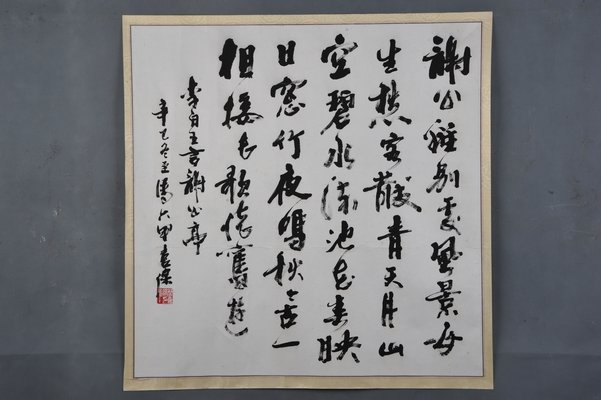 謝公離別處風景每
生愁客散青天月山
空碧水流池花春映
日窓竹夜鳴秋今古一
相接長歌懷舊遊
李白五言謝公亭
辛巳冬至